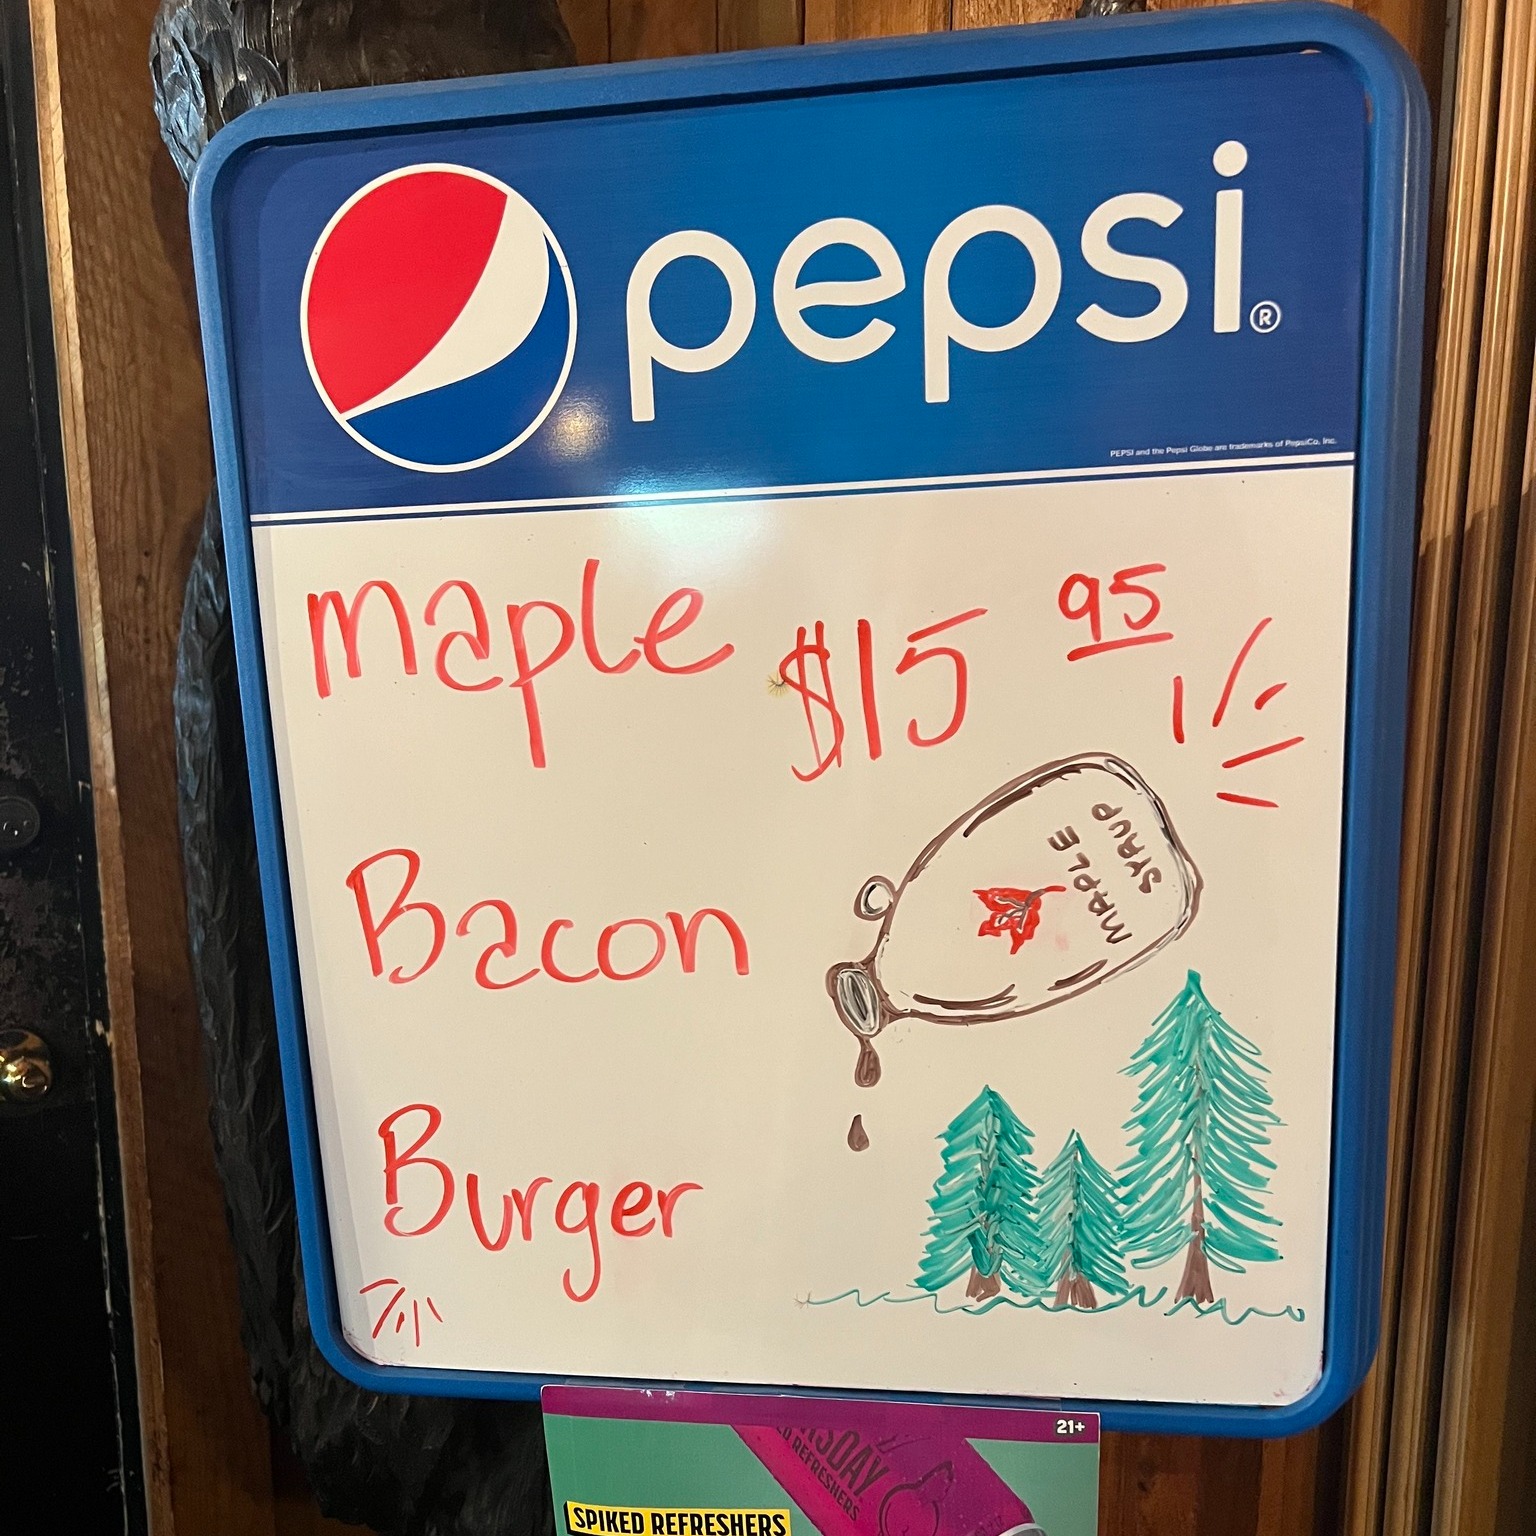 pepsi®
PEPSI and the Pepsi Globe are trademarks of PepsiCo, Inc.
maple $15 95
MAPLE
SYRUP
Bacon
Burger
21+
REFRESHERS
SPIKED REFRESHERS